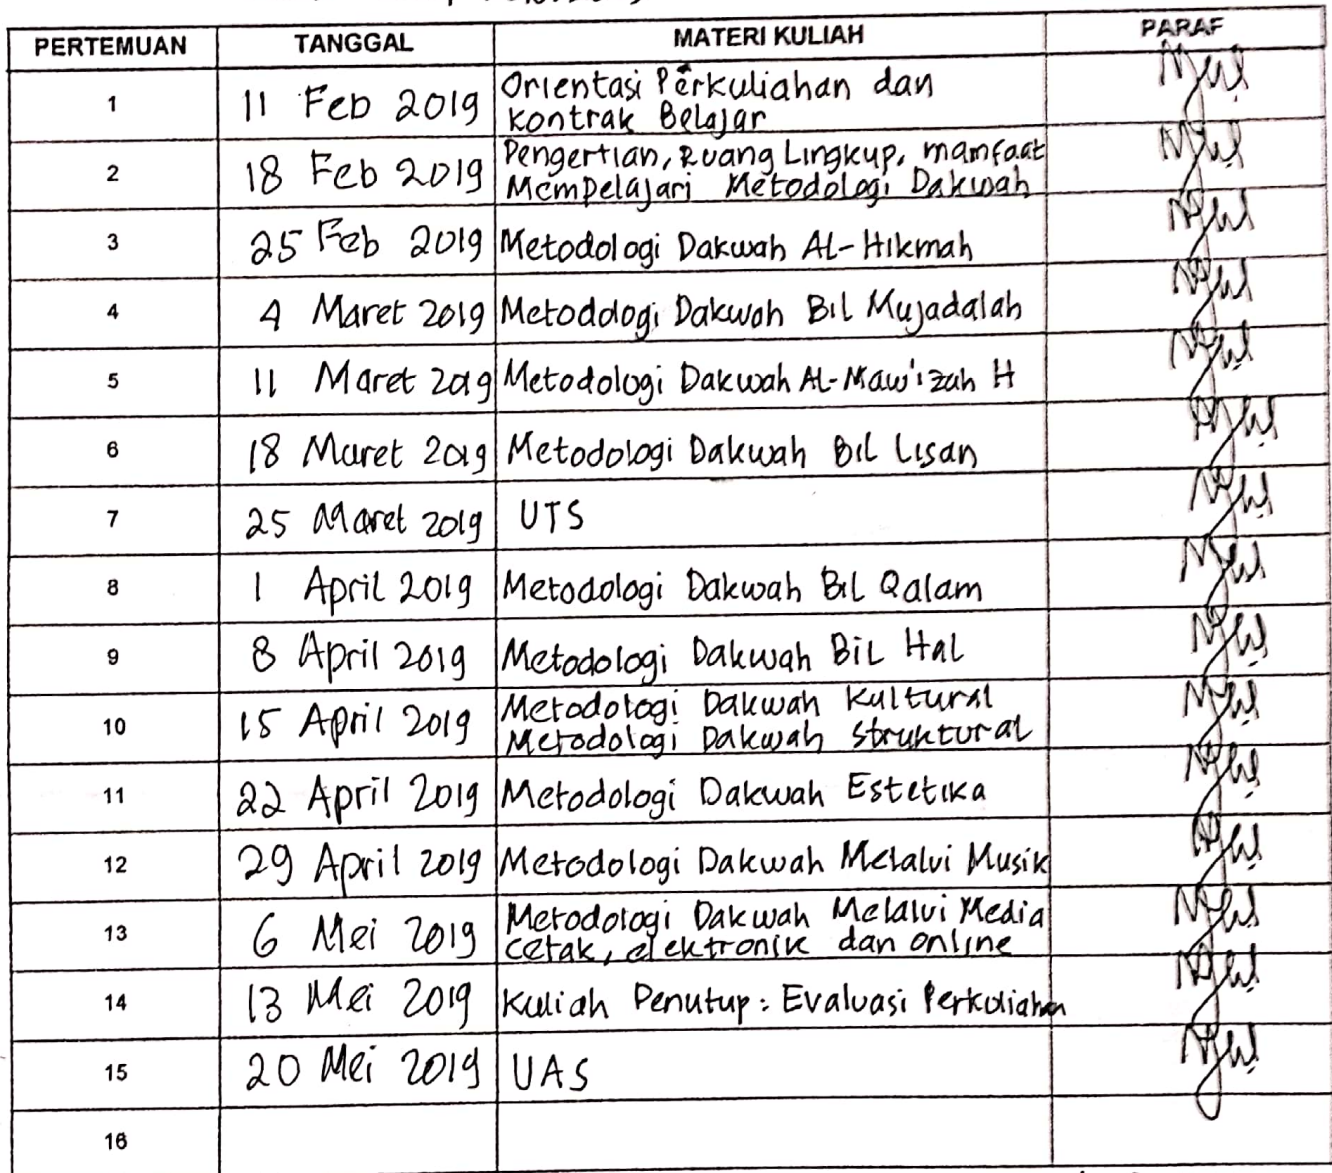 PERTEMUAN TANGGAL MATERI KULIAH PARAF
1 11 Feb 2019 Orientasi Perkuliahan dan
Kontrak Belajar
2 18 Feb 2019 Pengertian, Ruang Lingkup, mamfaat
Mempelajari Metodologi Dakwah
3 25 Feb 2019 Metodologi Dakwah Al-Hikmah
4 4 Maret 2019 Metodologi Dakwah Bil Mujadalah
5 11 Maret 2019 Metodologi Dakwah Al-Maw'izah H
6 18 Maret 2019 Metodologi Dakwah Bil Lisan
7 25 Maret 2019 UTS
8 1 April 2019 Metodologi Dakwah Bil Qalam
9 8 April 2019 Metodologi Dakwah Bil Hal
10 15 April 2019 Metodologi Dakwah Kultural
Metodologi Dakwah Struktural
11 22 April 2019 Metodologi Dakwah Estetika
12 29 April 2019 Metodologi Dakwah Melalui Musik
13 6 Mei 2019 Metodologi Dakwah Melalui Media
cetak, elektronik dan online
14 13 Mei 2019 Kuliah Penutup : Evaluasi Perkuliahan
15 20 Mei 2019 UAS
16